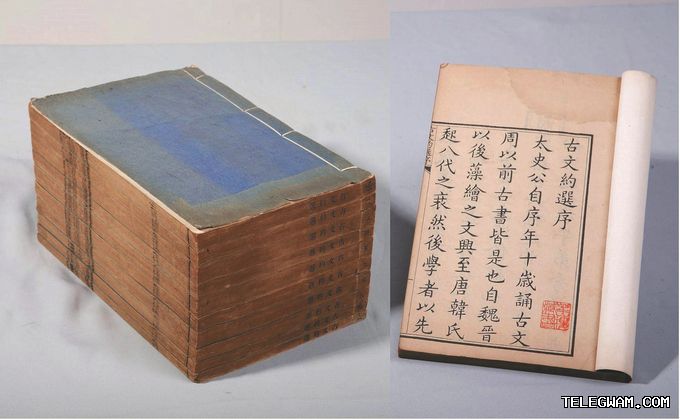 古文約選序
太史公自序年十歲誦古文
周以前古書皆是也自魏晋
以後藻繪之文興至唐韓氏
起八代之衰然後學者以先
TELEGWAM.COM